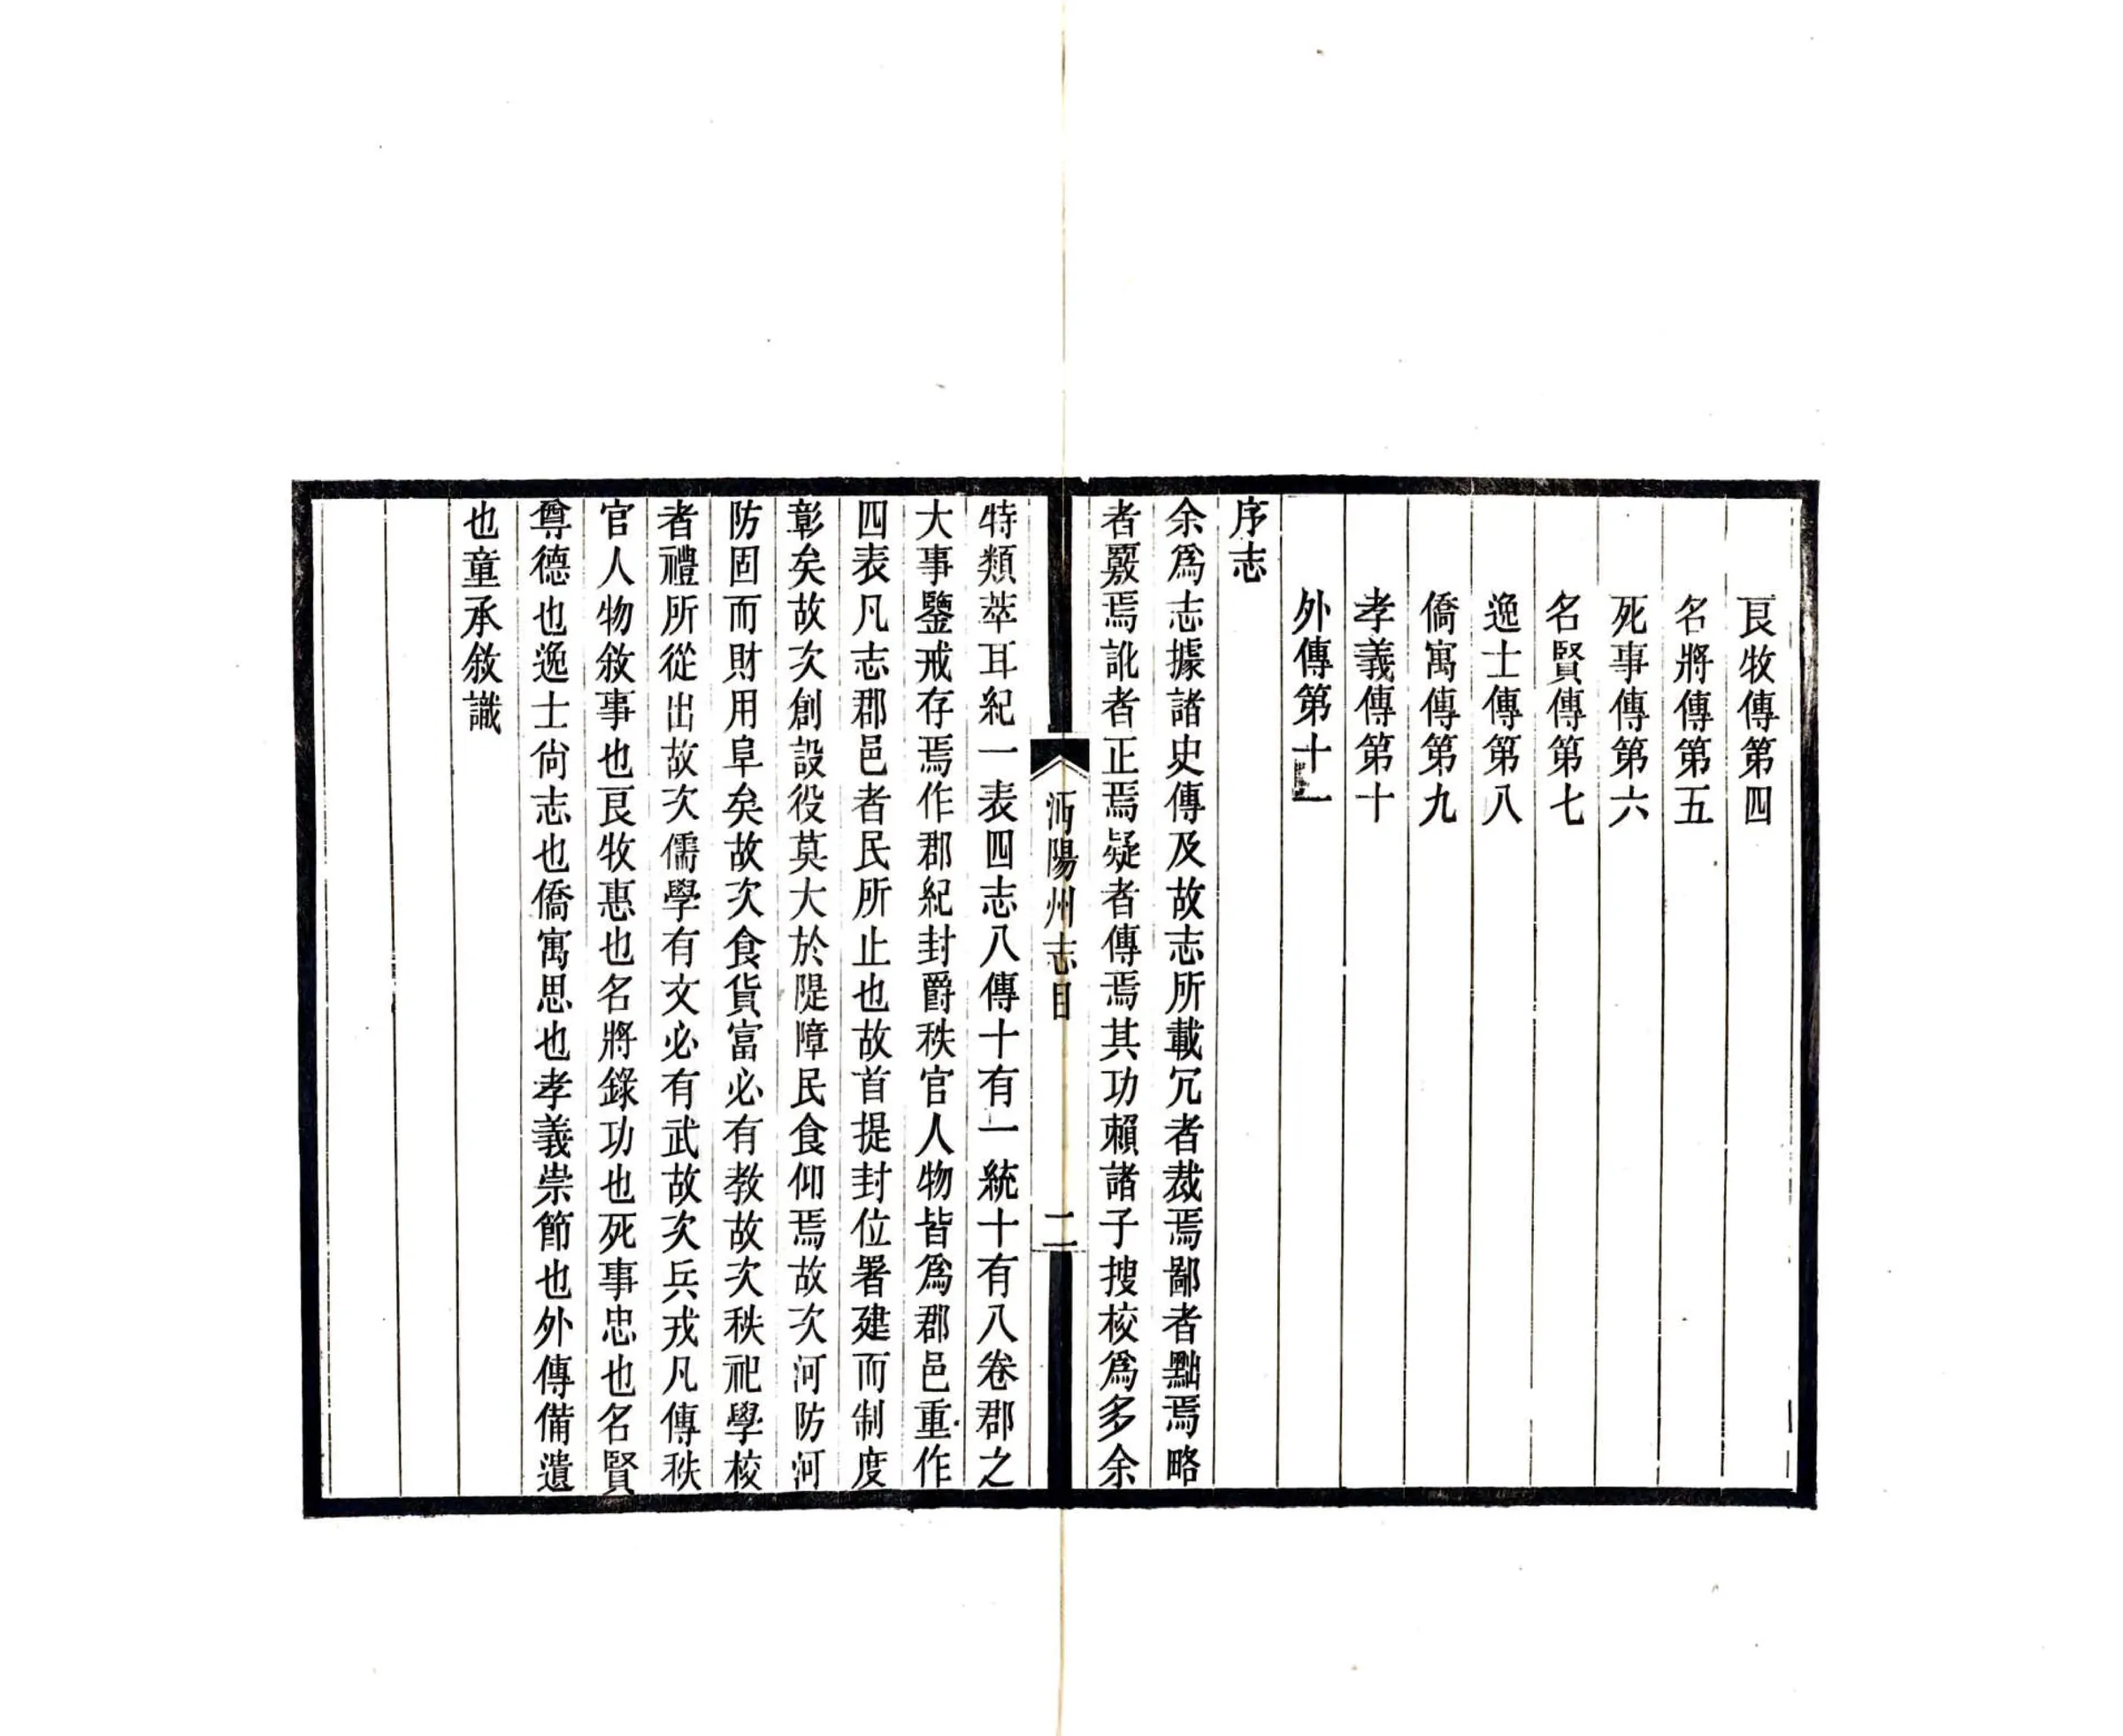 良牧傳第四
名將傳第五
死事傳第六
名賢傳第七
逸士傳第八
僑寓傳第九
孝義傳第十
外傳第十一
序志
余爲志據諸史傳及故志所載冗者裁焉鄙者黜焉略
者覈焉訛者正焉疑者傳焉其功賴諸子搜校爲多余
沔陽州志目
二
特類萃耳紀一表四志八傳十有一統十有八卷郡之
大事鑒戒存焉作郡紀封爵秩官人物皆爲郡邑重作
四表凡志郡邑者民所止也故首提封位署建而制度
彰矣故次創設役莫大於隄障民食仰焉故次河防河
防固而財用阜矣故次食貨富必有教故次秩祀學校
者禮所從出故次儒學有文必有武故次兵戎凡傳秩
官人物敘事也良牧惠也名將錄功也死事忠也名賢
尊德也逸士尙志也僑寓思也孝義崇節也外傳備遺
也童承敘識